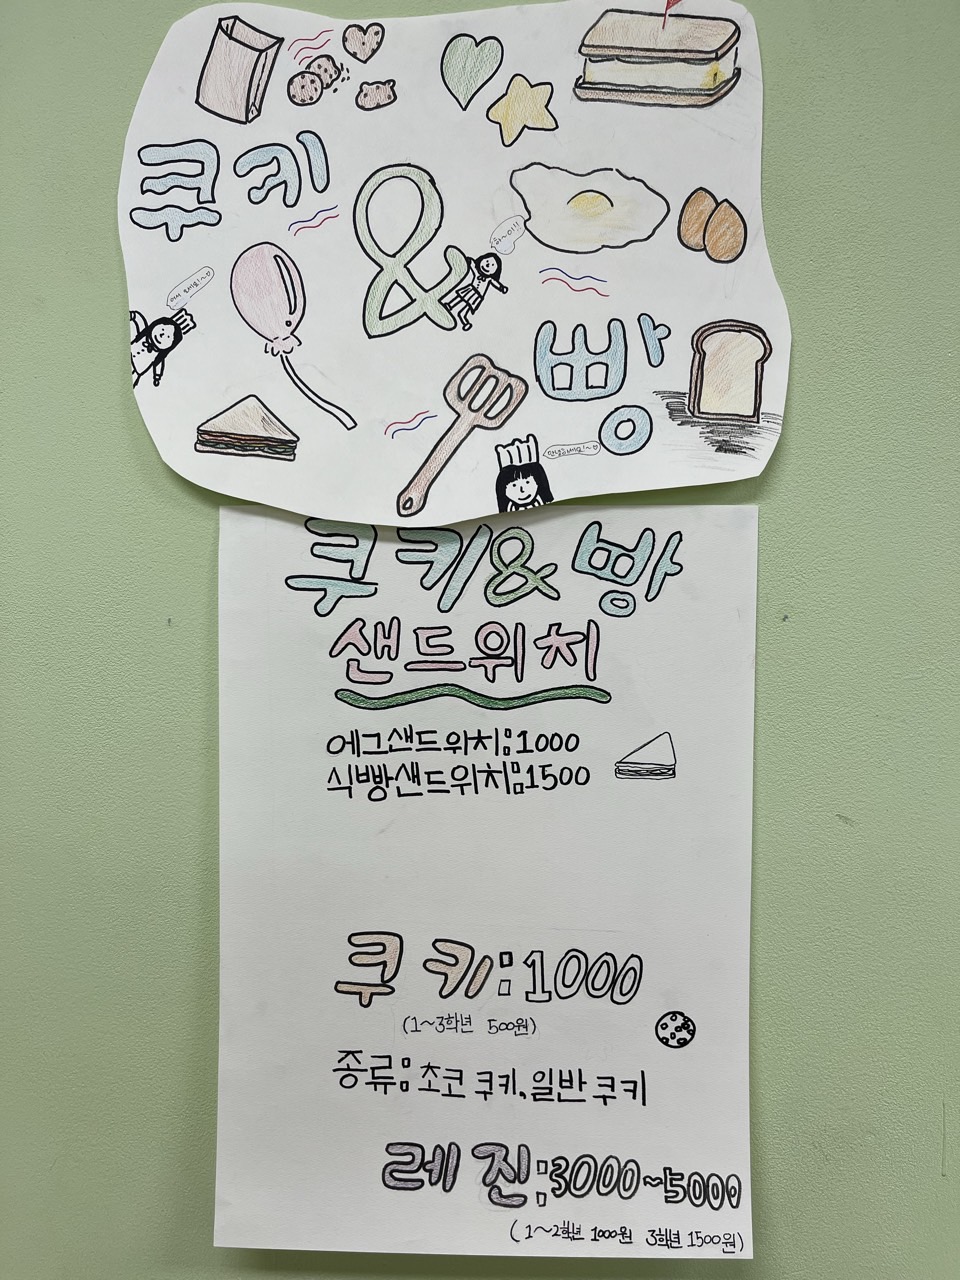 쿠키
&
하~이!!
어서 오세요!~♡
빵
안녕하세요!~♡
쿠키&빵
샌드위치
에그샌드위치:1000
식빵샌드위치:1500
쿠키:1000
(1~3학년 500원)
종류: 초코 쿠키, 일반 쿠키
레진:3000~5000
(1~2학년 1000원 3학년 1500원)